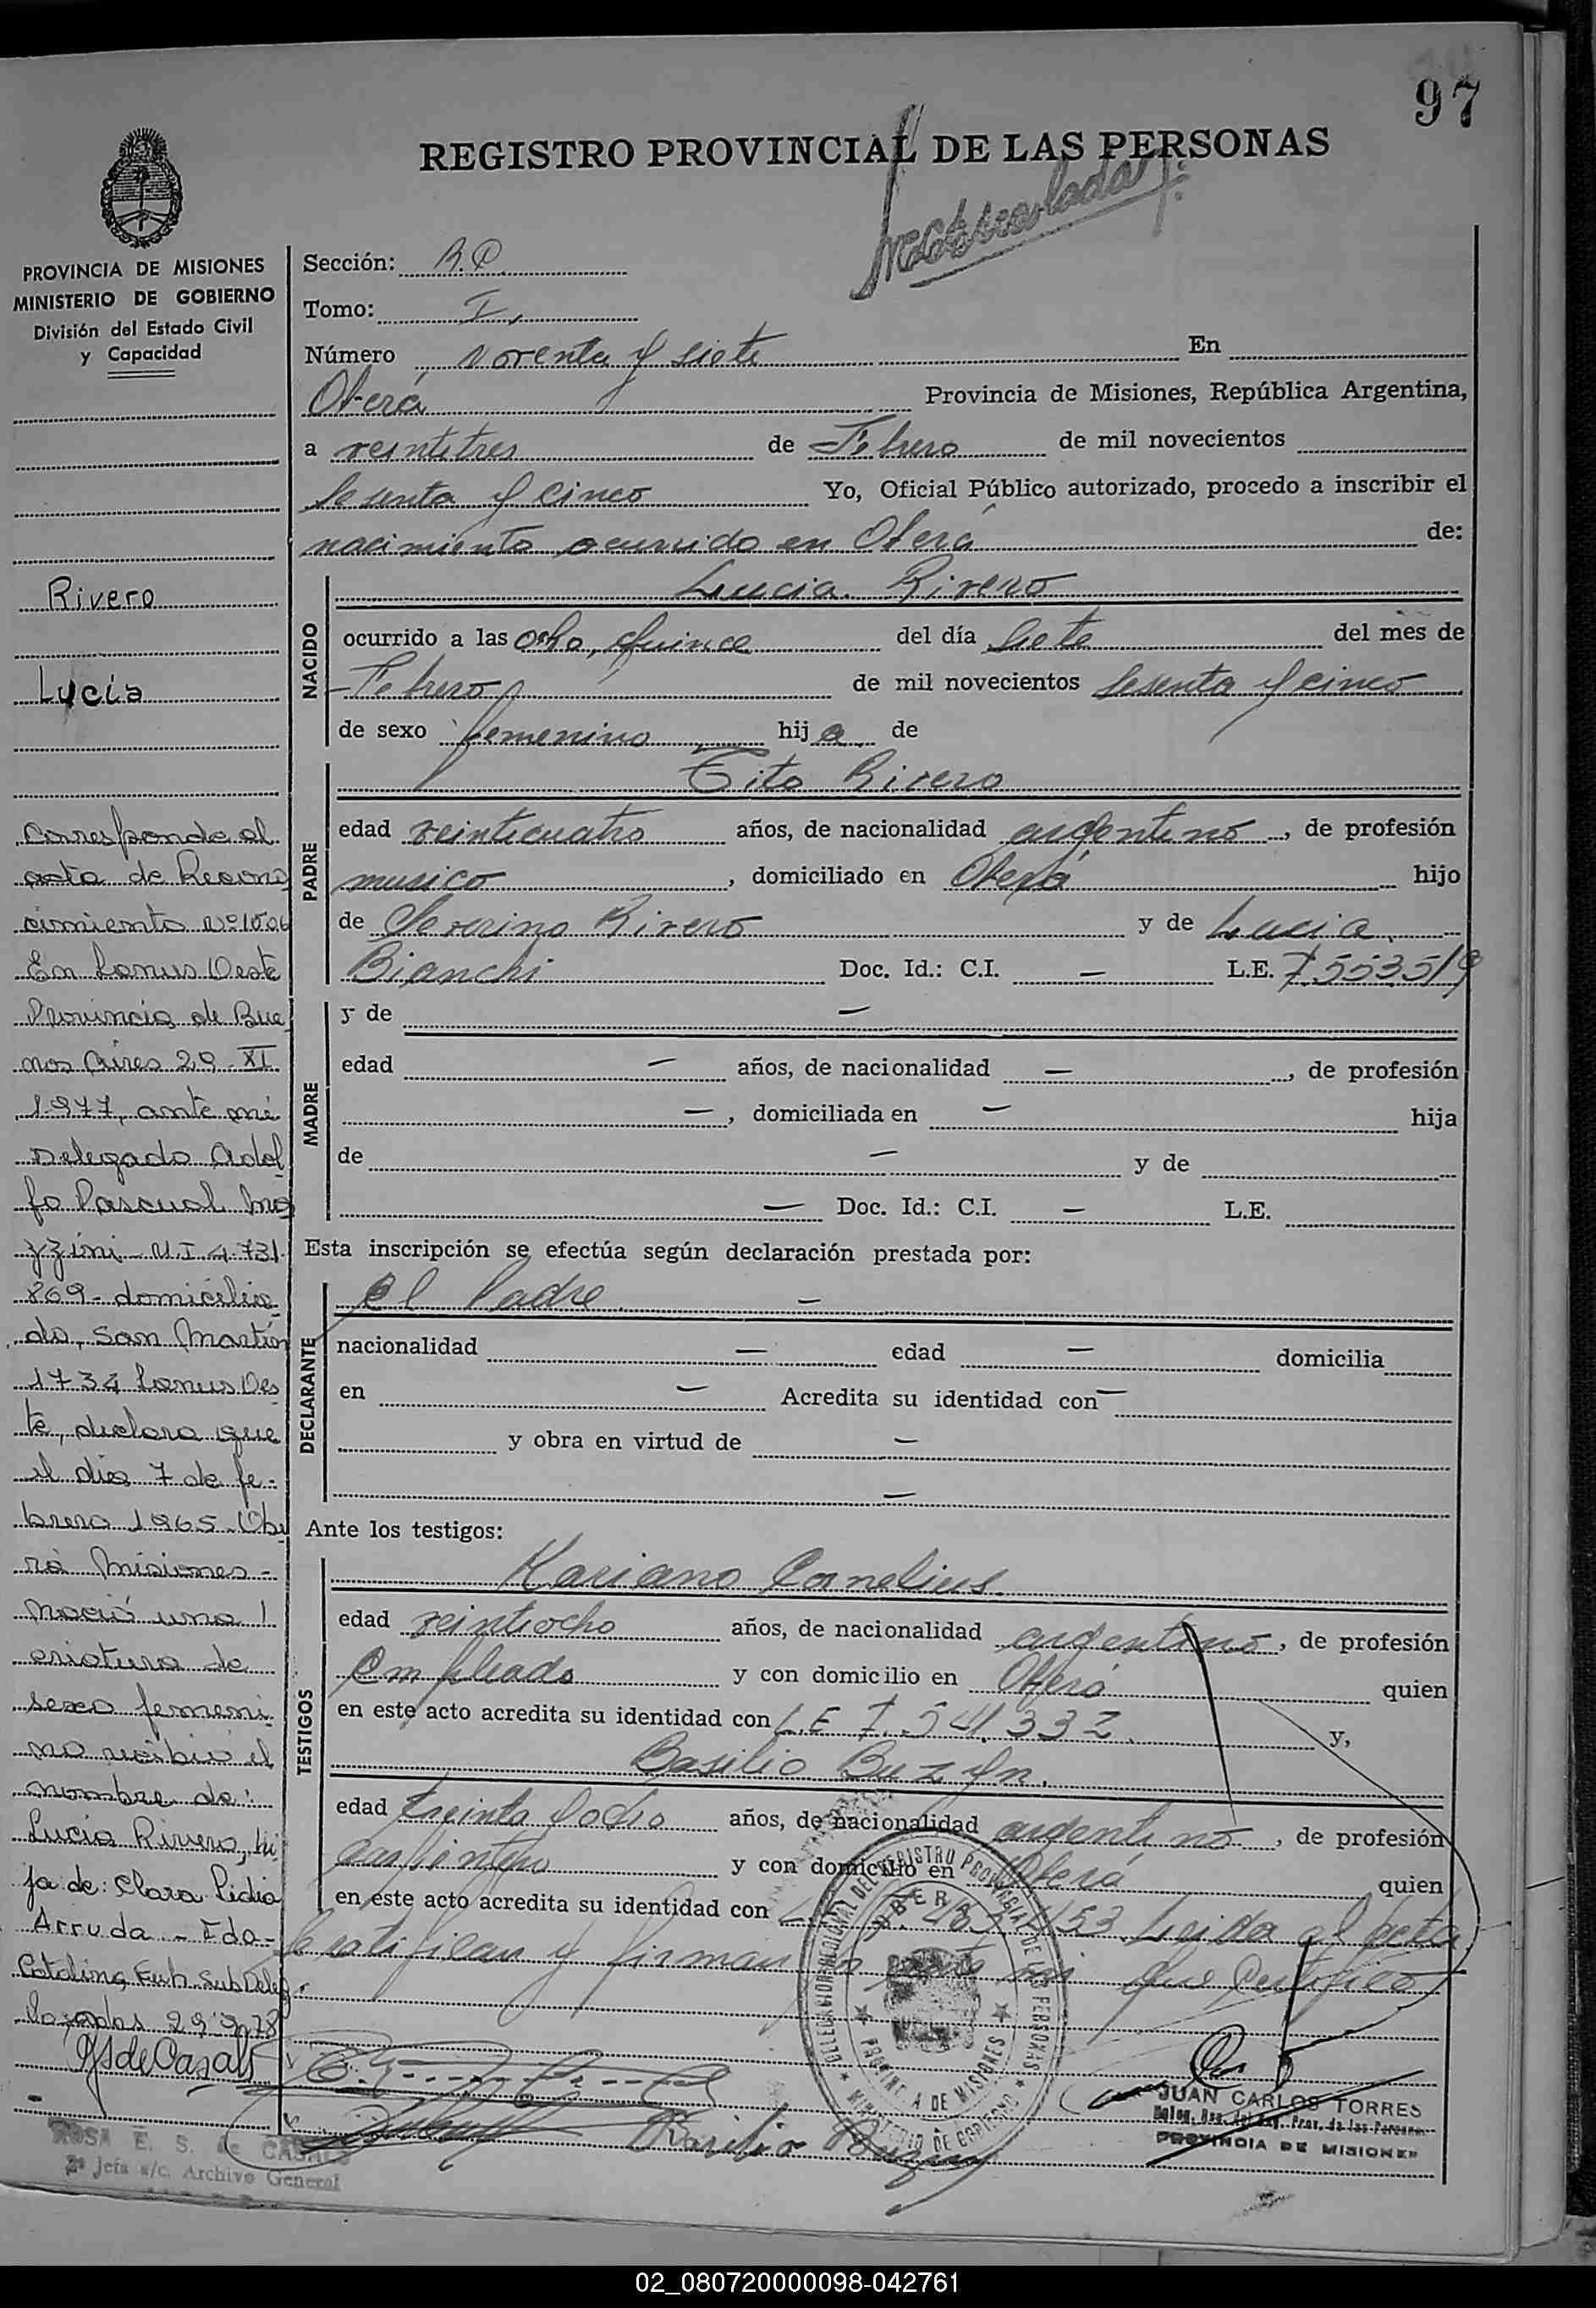 97
REGISTRO PROVINCIAL DE LAS PERSONAS
Matriculada
PROVINCIA DE MISIONES
MINISTERIO DE GOBIERNO
División del Estado Civil
y Capacidad
Rivero
Lucía
Corresponde al
acta de Recono
cimiento Nº 1506
En Lanus Oeste
Provincia de Bue
nos Aires 29-XI
1977, ante mi
Delegado Adol
fo Pascual Ma
zzini M.I 4.731.
869 - domicilia
do, San Martín
1734 Lanus Oes
te, declara que
el día 7 de fe-
brero 1965 - Obe
rá Misiones -
nació una
criatura de
sexo femeni
no recibió el
nombre de:
Lucia Rivero, hi
ja de: Clara Lidia
Arruda - Fdo -
Catalina Sub Deleg.
Posadas 29-9-78
ROSA E. S. de CASALS
2ª Jefa a/c. Archivo General
Sección: R.P.
Tomo: I,
Número noventa y siete En
Oberá Provincia de Misiones, República Argentina,
a veintitres de Febrero de mil novecientos
sesenta y cinco Yo, Oficial Público autorizado, procedo a inscribir el
nacimiento ocurrido en Oberá de:
NACIDO
Lucia Rivero
ocurrido a las ocho, quince del día siete del mes de
Febrero de mil novecientos sesenta y cinco
de sexo femenino hij a de
PADRE
Tito Rivero
edad veinticuatro años, de nacionalidad argentino, de profesión
musico, domiciliado en Oberá hijo
de Severino Rivero y de Lucia
Bianchi Doc. Id.: C.I. — L.E. 7.553.519
MADRE
y de —
edad — años, de nacionalidad —, de profesión
—, domiciliada en — hija
de — y de
— Doc. Id.: C.I. — L.E.
Esta inscripción se efectúa según declaración prestada por:
DECLARANTE
el Padre —
nacionalidad — edad — domicilia
en — Acredita su identidad con —
y obra en virtud de —
—
Ante los testigos:
TESTIGOS
Mariano Cornelius
edad veintiocho años, de nacionalidad argentino, de profesión
Empleado y con domicilio en Oberá quien
en este acto acredita su identidad con L.E 7.541.332 y,
Basilio Buzyn.
edad treinta y ocho años, de nacionalidad argentino, de profesión
carpintero y con domicilio en Oberá quien
en este acto acredita su identidad con Leida el acta
la ratifican y firman que Certifico
DELEGACION REGIONAL DEL REGISTRO PROVINCIAL DE LAS PERSONAS
OBERA
PROVINCIA DE MISIONES
MINISTERIO DE GOBIERNO
Basilio Buzyn
JUAN CARLOS TORRES
PROVINCIA DE MISIONES
02_080720000098-042761